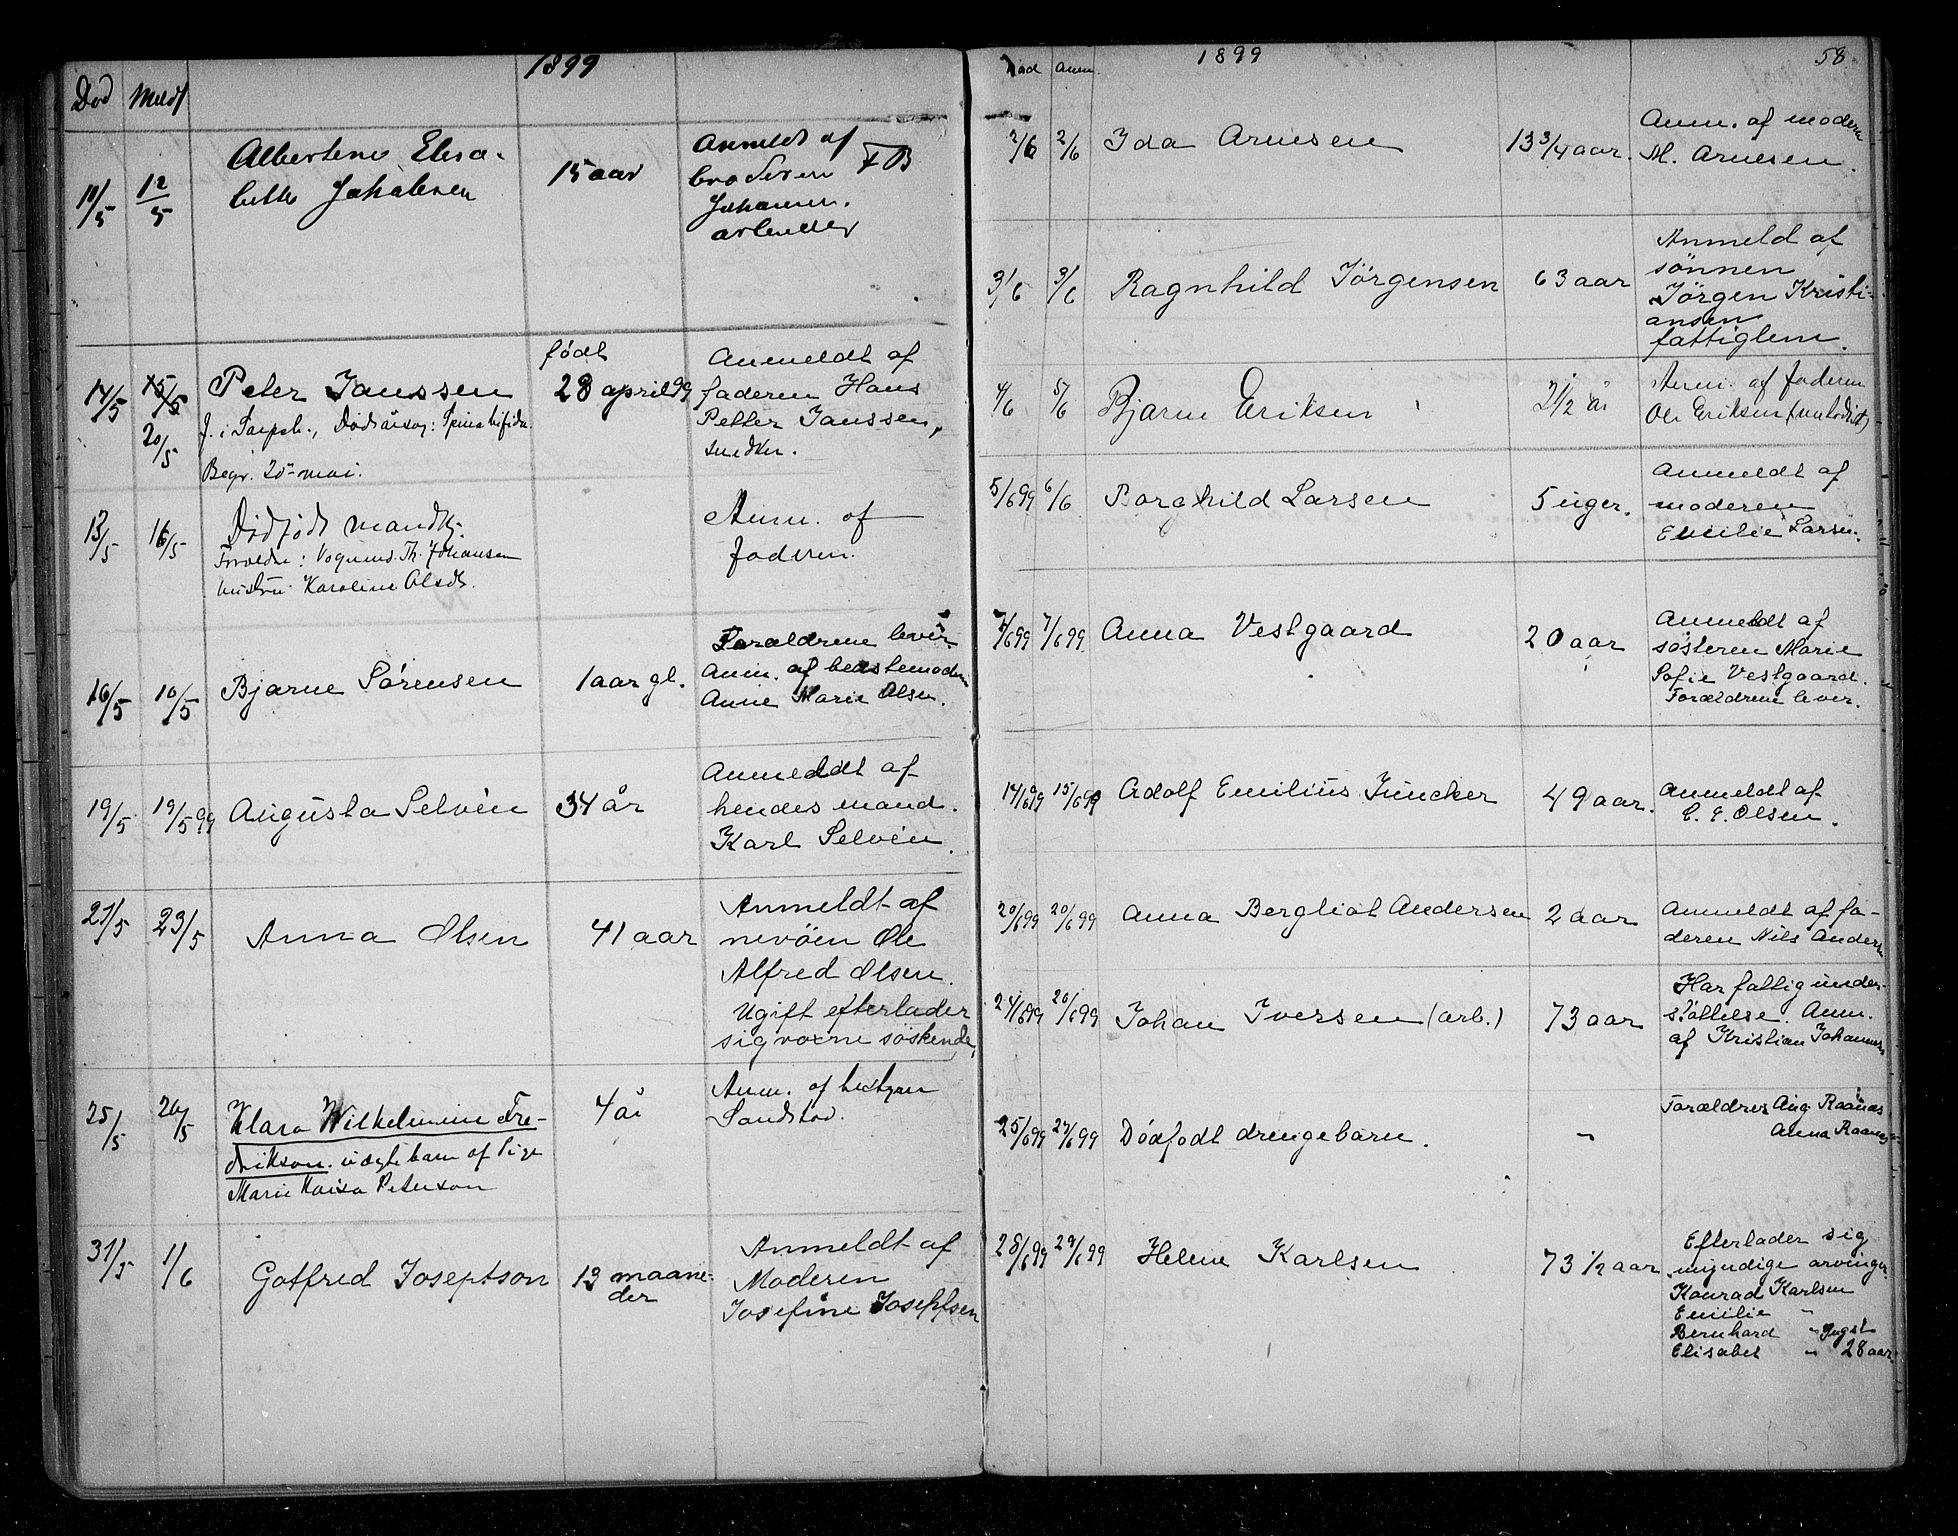 1899
Død Meldt
11/5 12/5 Albertine Elisa-
bette Johansen
15 aar
Anmeldt af
broderen FB
Johannes.
arbeider
14/5 15/5 Peter Janssen
20/5
J. i Sarpsb., Dødsårsag: Spina bifida
Begr. 20de mai.
født
28 april 99
Anmeldt af
faderen Hans
Petter Janssen,
snedker.
13/5 16/5 Dødfødt mandkj.
Forældre: Vognmd. Th. Johansen
hustru Karoline Olsdt.
Anm. af
faderen.
16/5 10/5 Bjarne Sørensen
1 aar gl.
Forældrene lever
Anm. af bestemoderen
Anne Marie Olsen.
19/5 19/5 99 Augusta Selvén
34 år
Anmeldt af
hendes mand.
Karl Selvén.
21/5 23/5 Anna Olsen
41 aar
Anmeldt af
nevøen Ole
Alfred Olsen.
Ugift efterlader
sig voxne søskende,
25/5 26/5 Klara Wilhelmine Fre-
drikson. uægte barn af Pige
Marie Kaisa Peterson
4 år
Anm. af bestyrer
Sandstød.
31/5 1/6 Gotfred Joseptson
13 maane-
der
Anmeldt af
Moderen
Josefine Josephsen
1899
58
Død Anm.
2/6 2/6 Ida Arnesen
13 3/4 aar.
Anm. af modern
M. Arnesen.
3/6 3/6 Ragnhild Jörgensen
63 aar
Anmeld af
sönnen
Jörgen Kristi-
ansen
fattiglem.
4/6 5/6 Bjarne Eriksen
2 1/2 år
Anm. af faderen
Ole Eriksen (methodist)
5/6 99 6/6 Borghild Larsen
5 uger.
Anmeldt af
moderen
Emilie Larsen.
7/6 99 7/6 99 Anna Vestgaard
20 aar
Anmeldt af
søsteren Marie
Sofie Vestgaard.
Forældrene lever.
14/6 99 15/6 99 Adolf Emilius Juncker
49 aar.
Anmeldt af
C. E. Olsen.
20/6 99 20/6 99 Anna Bergliot Andersen
2 aar
Anmeldt af fa-
deren Nils Andersn
24/6 99 20/6 99 Johan Iversen (arb.)
73 aar
Har fattigunder-
støttelse. Anm.
af Kristian Johannesn
25/6 99 27/6 99 Dødfødt drengebarn.
"
Forældres Aug. Raanås
Anna Raanås
28/6 99 29/6 99 Helene Karlsen
73 1/2 aar
Efterlader sig
myndige arvinger.
Konrad Karlsen
Emilie "
Bernhard " yngst
Elisabet " 28 aar.